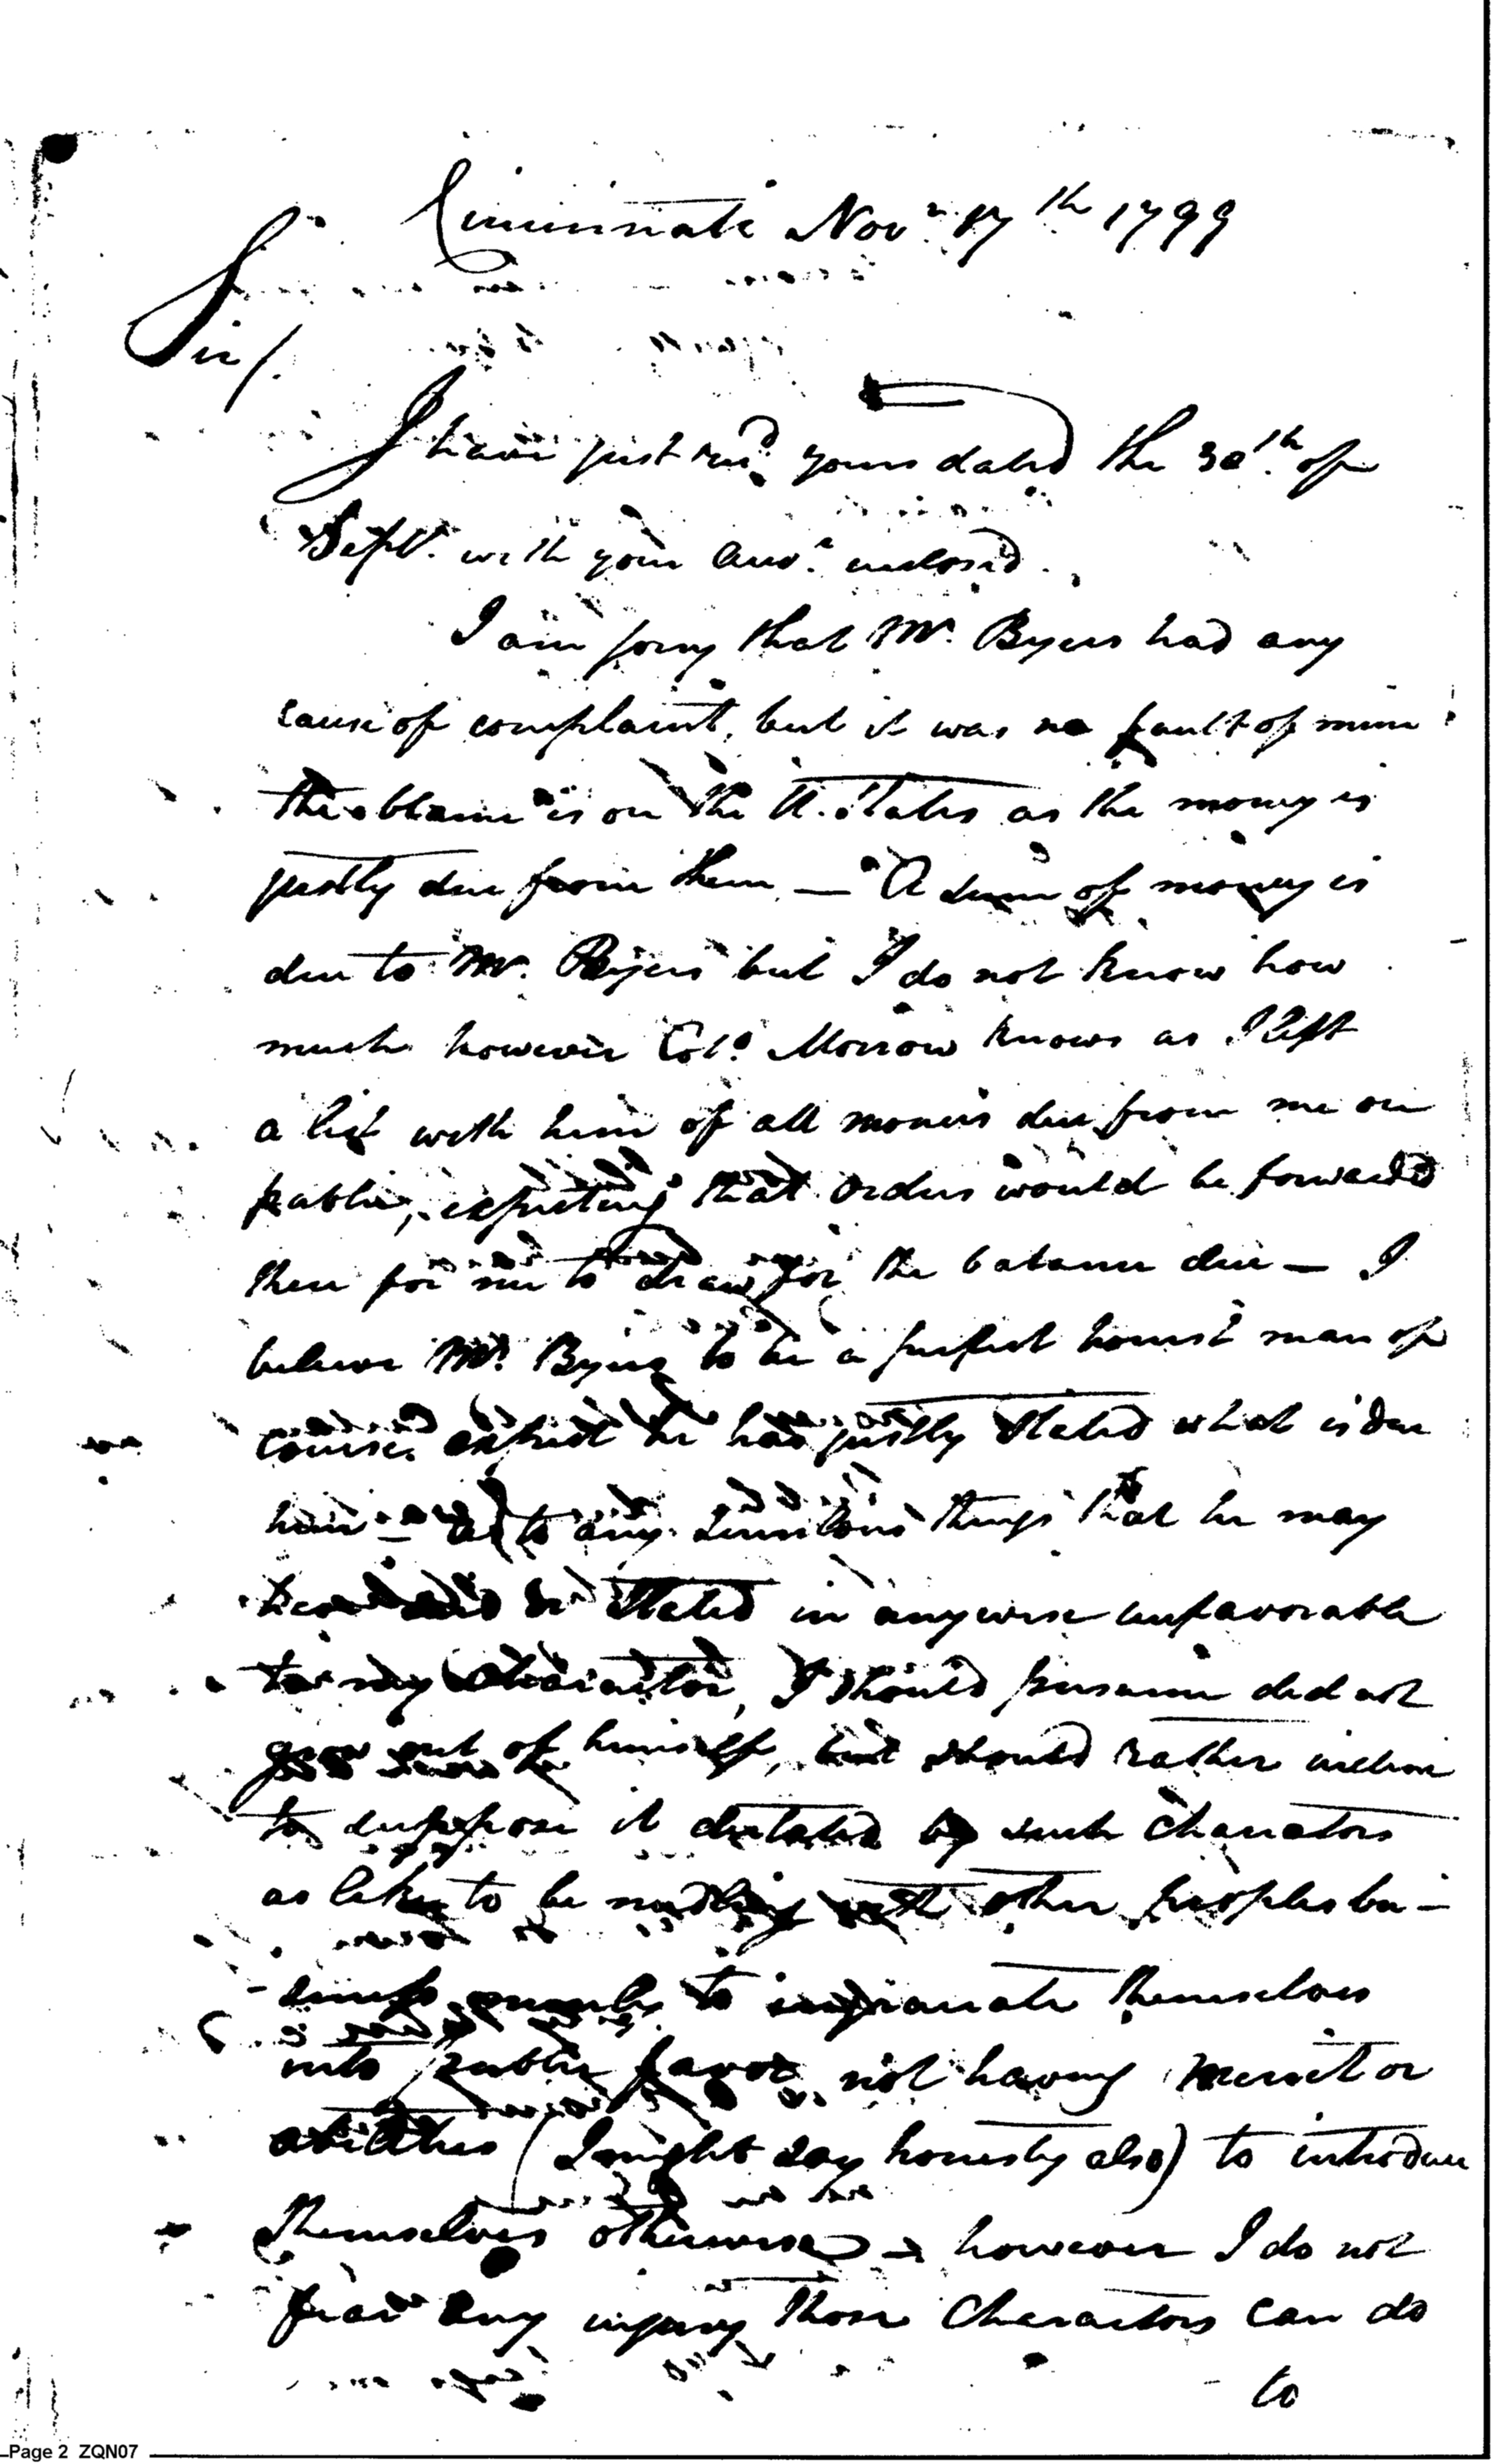 Cincinnati Novr 17th 1799
Sir/.
I have just recd yours dated the 30th of
Sept. with your inclosed.
I am sorry that Mr. Byers had any
cause of complaint, but it was no fault of mine
the blame is on the U. States as the money is
justly due from them — A sum of money is
due to Mr. Byers but I do not know how
much however Colo. Morrow knows as I left
a list with him of all monies due from me on
public, expecting that orders would be forwarded
there for me to draw for the balance due — I
believe Mr. Byers to be a perfect honest man of
course expect he has justly stated what is due
him — as to any things that he may
have said or stated in anywise unfavorable
to my charactor, I should presume did not
grow out of himself, but should rather incline
to suppose it dictated by such charactors
as like to be medling with other peoples bu-
siness to ingraciate themselves
into public favor not having merit or
abilities (I might say honesty also) to introduce
themselves otherwise — however I do not
fear any injury those charactors can do
to
Page 2 ZQN07